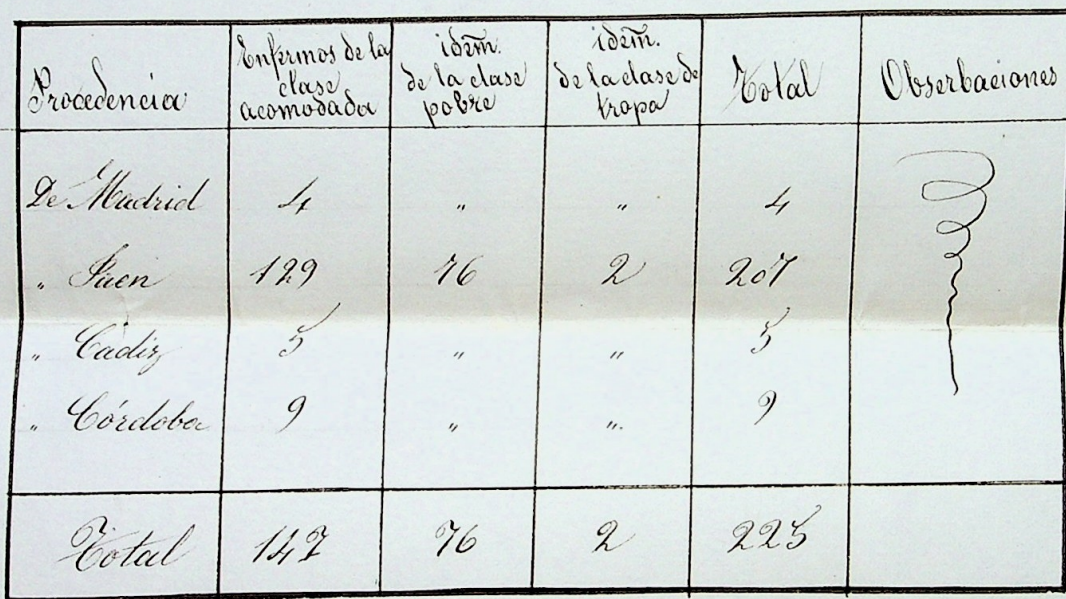 Procedencia | Enfermos de la clase acomodada | idem. de la clase pobre | idem. de la clase de tropa | Total | Obserbaciones
De Madrid | 4 | " | " | 4
" Jaen | 129 | 76 | 2 | 207
" Cadiz | 5 | " | " | 5
" Córdoba | 9 | " | " | 9
Total | 147 | 76 | 2 | 225